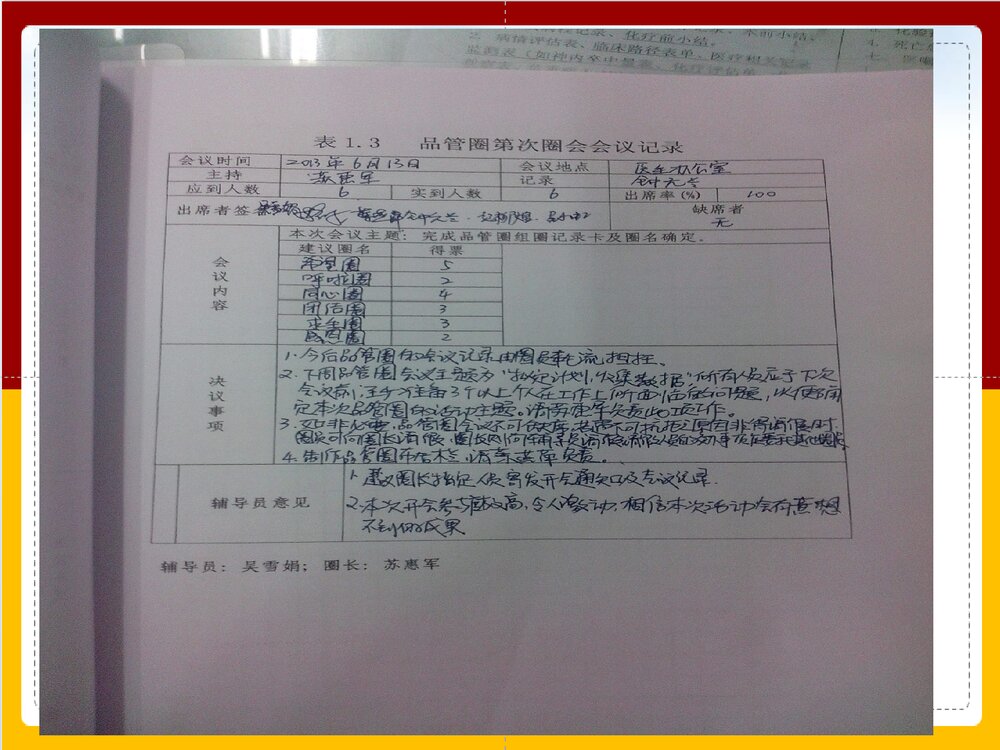 病情评估表、临床路径表单、医疗相关记录
表 1.3 品管圈第次圈会会议记录
会议时间 2013年6月13日 会议地点 医生办公室
主持 苏惠军 记录
应到人数 6 实到人数 6 出席率(%) 100
出席者签 缺席者
无
会议内容
本次会议主题：完成品管圈组圈记录卡及圈名确定。
建议圈名 得票
希望圈 5
呼啦圈 2
同心圈 4
团结圈 3
求生圈 3
感恩圈 2
决议事项
1.今后品管圈的会议记录由圈员轮流担任。
2.下周品管圈会议主题为"拟定计划,收集数据",所有人员应于下次
会议前,至少准备3个以上个人在工作上所面临的问题,以便确
定本次品管圈的活动主题。请 负责此项工作。
3.如非必要,品管圈会议不可缺席,若遇不可抗拒之原因非得请假时,
圈员可向圈长请假,圈长则向辅导员请假,
4.制作品管圈布告栏,请 负责。
辅导员意见
1.建议圈长指定人员寄发开会通知以及会议记录.
2.本次开会参与度极高,令人激动,相信本次活动会有意想
不到的成果
辅导员：吴雪娟；圈长：苏惠军